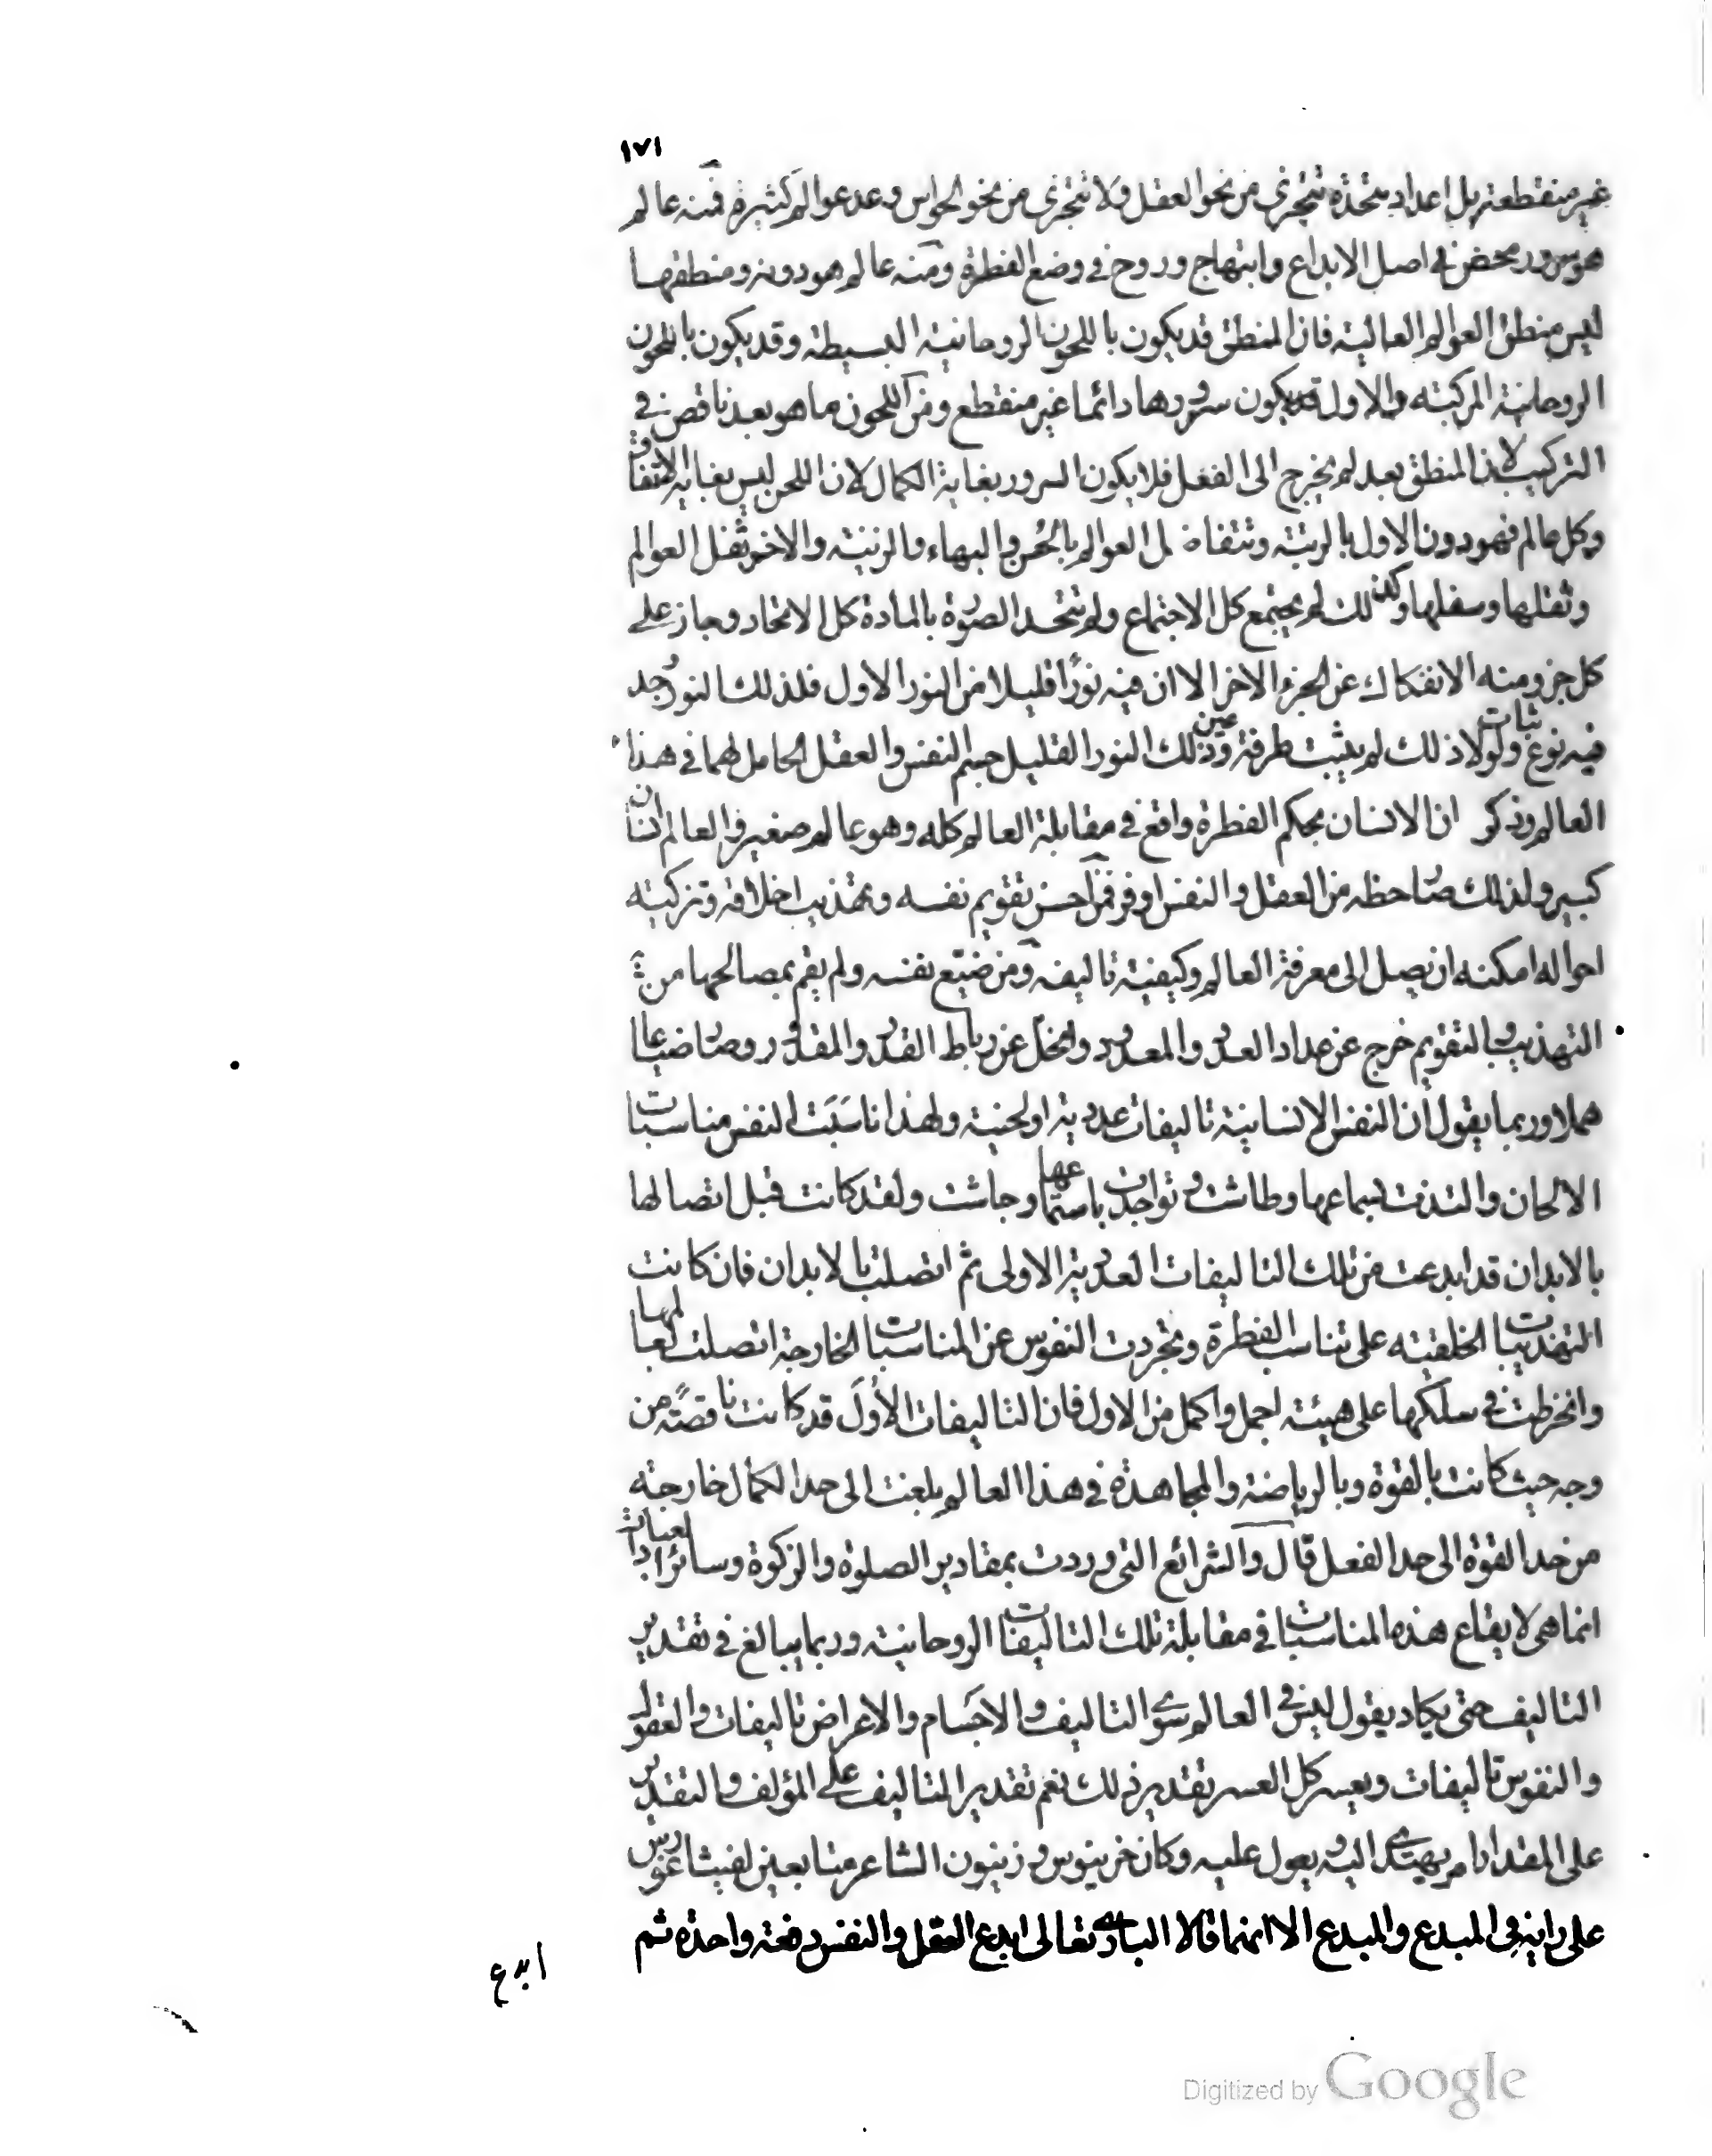 ١٧١
غير منقطعة بل اعداد متحدة تتجزى من نحو العقل ولا تتجزى من نحو الحواس وعد عوالم كثيرة فمنه عالم
هو سرور محض في اصل الابداع وابتهاج وروح في وضع الفطرة ومنه عالم هو دونه ومنطقها
ليس منطق العوالم العالية فان المنطق قد يكون باللحون الروحانية البسيطة وقد يكون باللحون
الروحانية المركبة والاول قد يكون سرورها دائما غير منقطع ومن اللحون ما هو بعد ناقص في
التركيب لان المنطق بعد لم يخرج الى الفعل فلا يكون السرور بغاية الكمال لان اللحن ليس بغاية الاتفاق
وكل عالم فهو دون الاول بالرتبة وتتفاضل العوالم بالحسن والبهاء والزينة والاخر ثفل العوالم
وثقلها وسفلها وكذلك لم يجتمع كل الاجتماع ولم تتحد الصورة بالمادة كل الاتحاد وجاز على
كل جزو منه الانفكاك عن الجزء الاخر الا ان فيه نورًا قليلا من النور الاول فلذلك النور وُجد
فيه نوع ثبات ولولا ذلك لم يثبت طرفة عين وذلك النور القليل جسم النفس والعقل الحامل لهما في هذا
العالم وذكر ان الانسان بحكم الفطرة واقع في مقابلة العالم كله وهو عالم صغير والعالم انسان
كبير ولذلك صار حظه من العقل والنفس اوفر فمن احسن تقويم نفسه وتهذيب اخلاقه وتزكية
احواله امكنه ان يصل الى معرفة العالم وكيفية تاليفه ومن ضيّع نفسه ولم يقم بمصالحها من
التهذيب والتقويم خرج عن عداد العدد والمعدود وانحلّ عن رباط القدر والمقدور وصار ضياعا
هملا وربما يقول ان النفس الانسانية تاليفات عددية او لحنية ولهذا ناسَبَت النفس مناسبات
الالحان والتذت بسماعها وطاشت وتواجدت باستماعها وجاشت ولقد كانت قبل اتصالها
بالابدان قد ابدعت من تلك التاليفات العددية الاولى ثم اتصلت بالابدان فان كانت
التهذيبات الخلقية على تناسب الفطرة وتجردت النفوس عن المناسبات الخارجة اتصلت بعالمها
وانخرطت في سلكها على هيئة اجمل واكمل من الاول فان التاليفات الأولَ قد كانت ناقصةً من
وجه حيث كانت بالقوة وبالرياضة والمجاهدة في هذا العالم بلغت الى حد الكمال خارجة
من حد القوة الى حد الفعل قال والشرائع التي وردت بمقادير الصلوة والزكوة وسائر العبادات
انما هي لايقاع هذه المناسبات في مقابلة تلك التاليفات الروحانية وربما يبالغ في تقدير
التاليف حتى يكاد يقول ليس في العالم سوى التاليف والاجسام والاعراض تاليفات والعقول
والنفوس تاليفات ويعسر كل العسر تقدير ذلك نعم تقدير التاليف على المؤلف والتقدير
على المقدار امر يهتدى اليه ويعول عليه وكان خرينوس وزينون الشاعر متابعين لفيثاغورس
على رايه في المبدع والمبدع الا انهما قالا البارى تعالى ابدع العقل والنفس دفعة واحدة ثم
ابدع
Digitized by Google